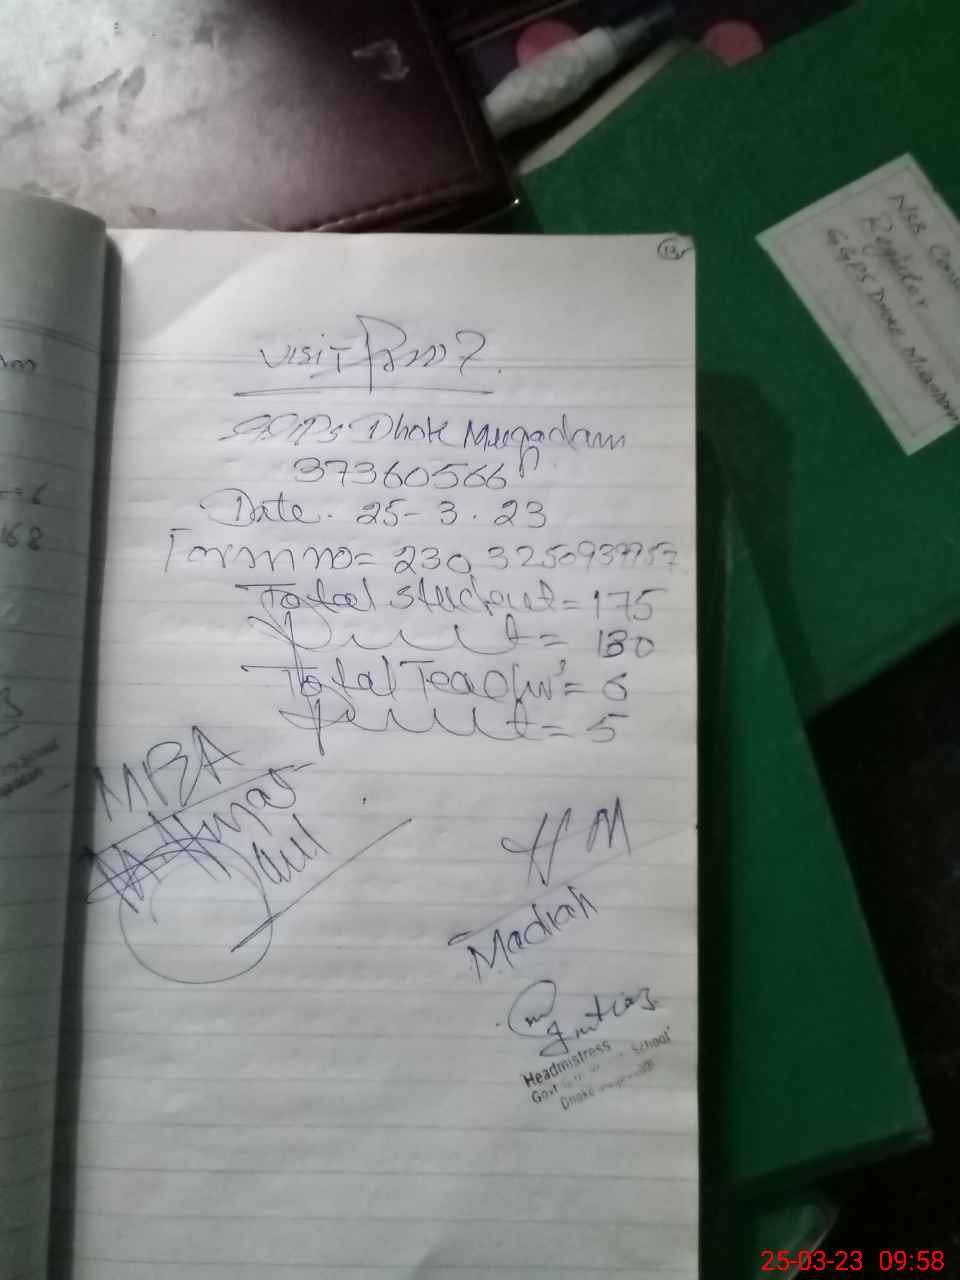 Visit
GGPS Dhok Muqadam
37360566
Date. 25-3.23
Form no= 230 3250939957
Total student= 175
Present= 130
Total Teacher= 6
Present= 5
MBA
HM
Madiah
Imtiaz
Headmistress
Govt School
Dhoke
=6
168
NSB
Register
GGPS Dhoke
25-03-23 09:58